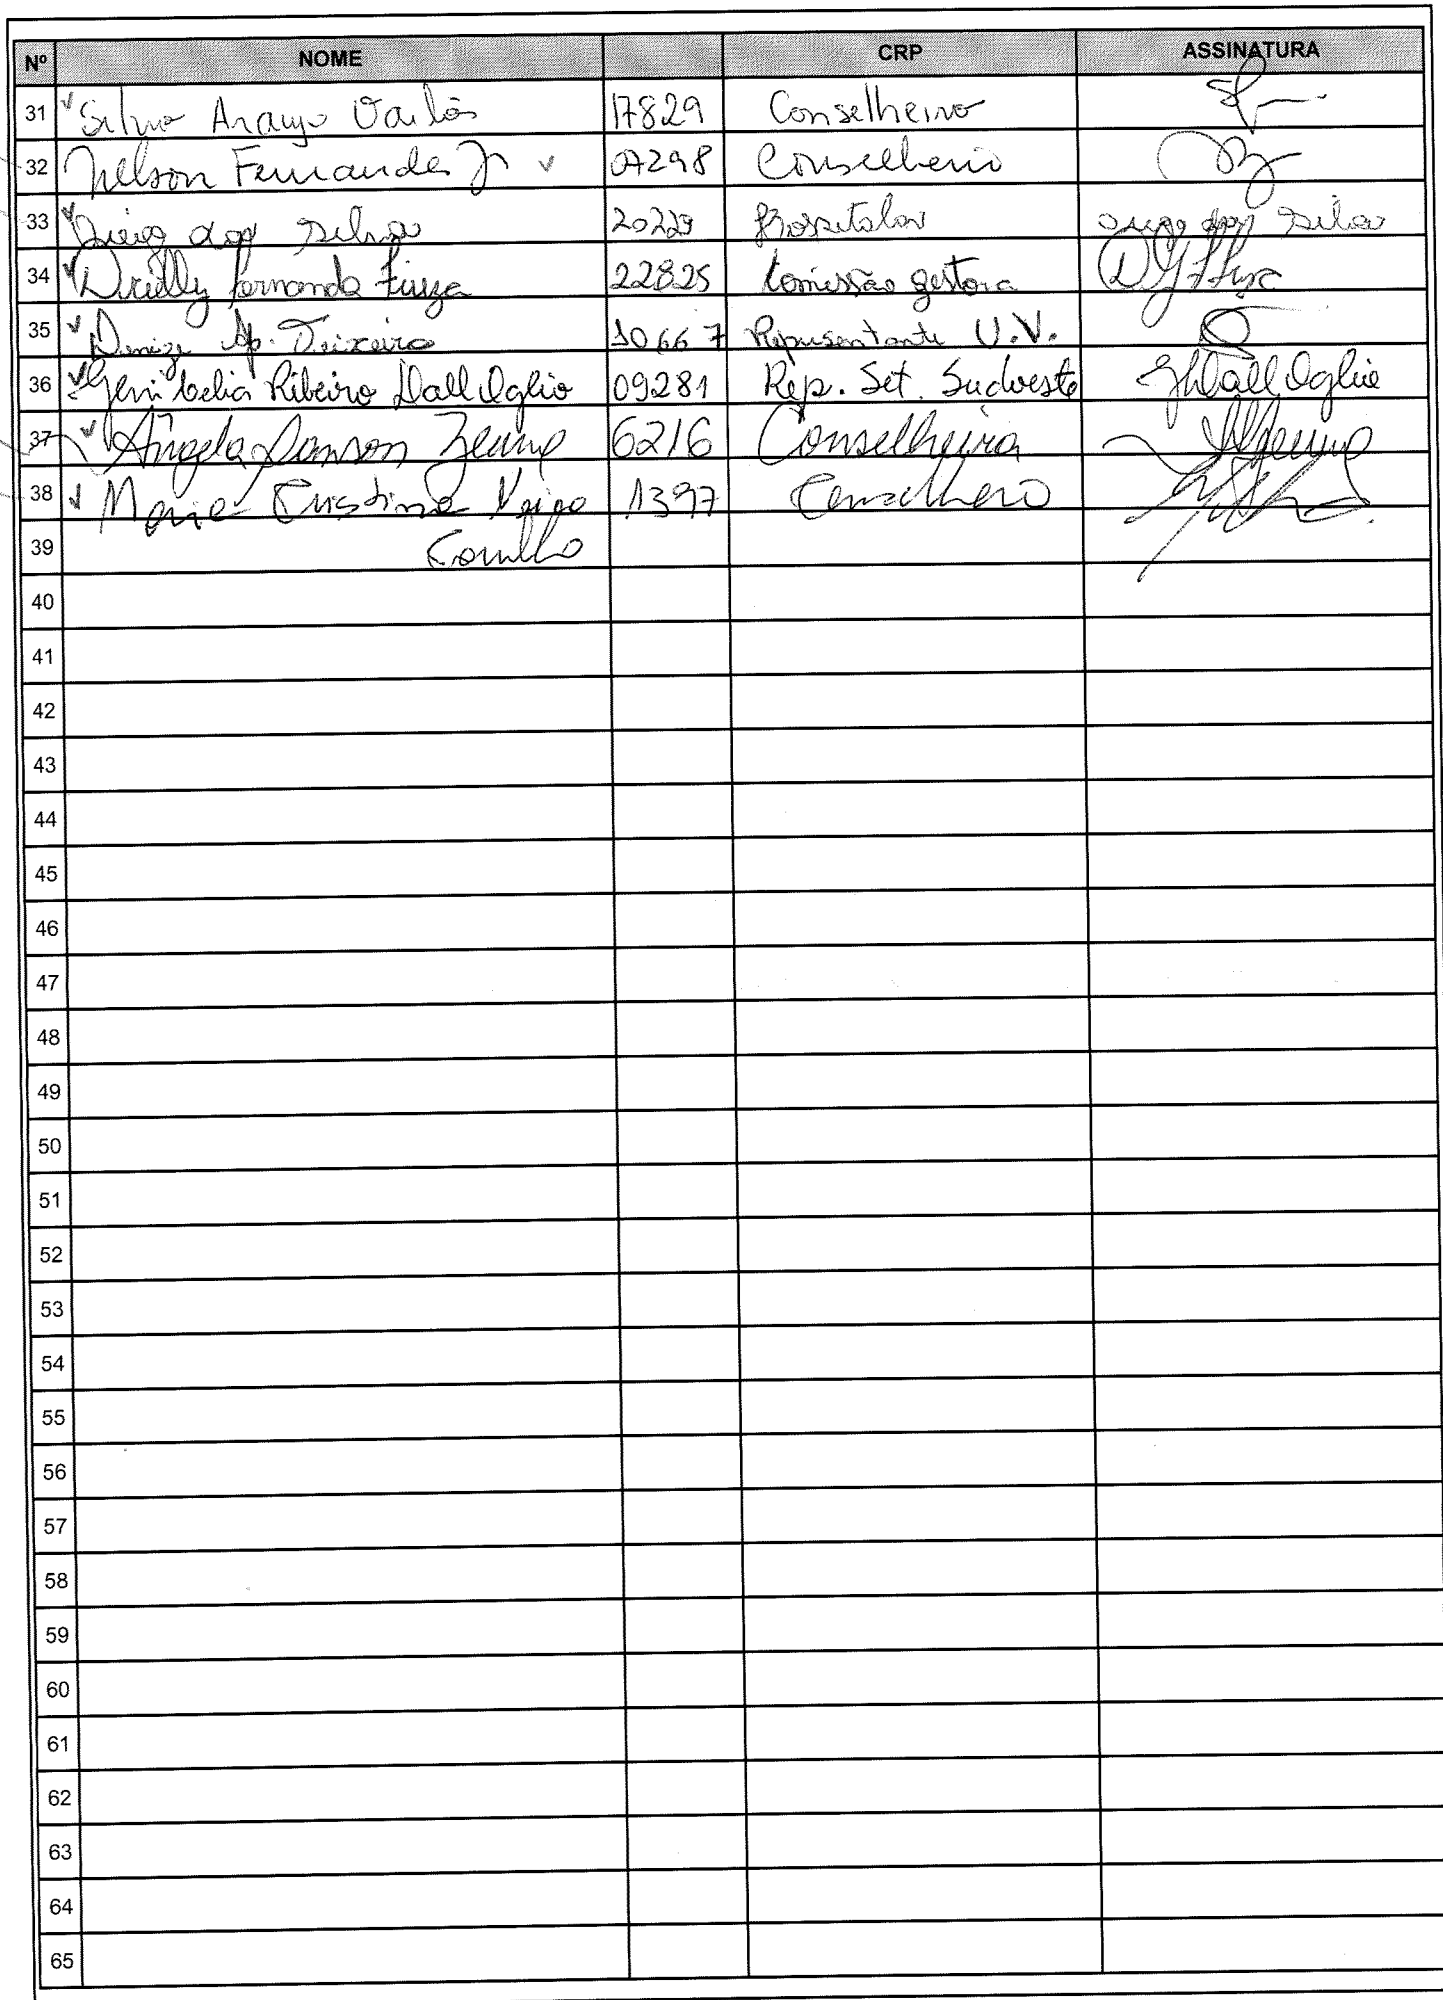 Nº NOME CRP ASSINATURA
31 Silvio Araujo 17829 Conselheiro
32 Nelson Fernandes Jr 07298 Conselheiro
33 Diego da Silva 20229 Hospitalar Diego da Silva
34 Fernanda Fiuza 22825 Comissão gestora
35 Denize Ap. Teixeira 10667 Representante U.V.
36 Geni Célia Ribeiro Dall Oglio 09281 Rep. Set. Sudoeste Dall Oglio
37 Angela 6216 Conselheira
38 Maria Cristina 1397 Conselheiro
39
40
41
42
43
44
45
46
47
48
49
50
51
52
53
54
55
56
57
58
59
60
61
62
63
64
65